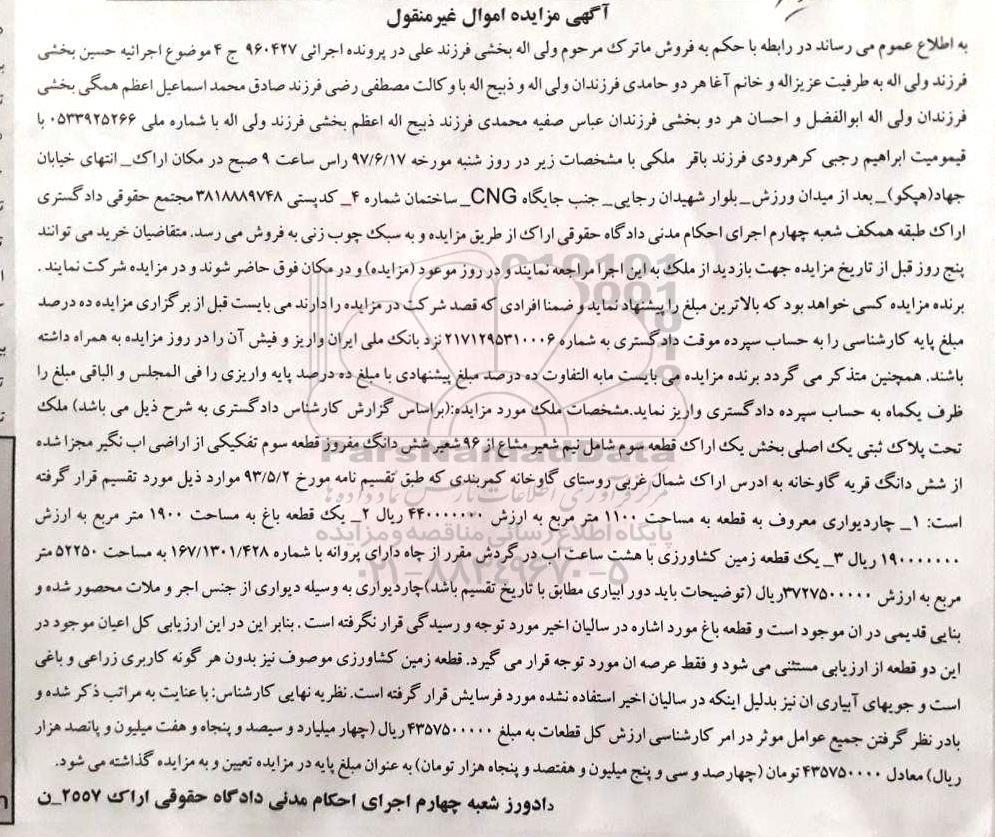 آگهی مزایده اموال غیرمنقول
به اطلاع عموم می رساند در رابطه با حکم به فروش ماترک مرحوم ولی اله بخشی فرزند علی در پرونده اجرائی ۹۶۰۴۲۷ ج ۴ موضوع اجرائیه حسین بخشی
فرزند ولی اله به طرفیت عزیزاله و خانم آغا هر دو حامدی فرزندان ولی اله و ذبیح اله با وکالت مصطفی رضی فرزند صادق محمد اسماعیل اعظم همگی بخشی
فرزندان ولی اله ابوالفضل و احسان هر دو بخشی فرزندان عباس صفیه محمدی فرزند ذبیح اله اعظم بخشی فرزند ولی اله با شماره ملی ۰۵۳۳۹۲۵۲۶۶ با
قیمومیت ابراهیم رجبی کرهرودی فرزند باقر ملکی با مشخصات زیر در روز شنبه مورخه ۹۷/۶/۱۷ راس ساعت ۹ صبح در مکان اراک_ انتهای خیابان
جهاد(هپکو)_ بعد از میدان ورزش_ بلوار شهیدان رجایی_ جنب جایگاه CNG_ ساختمان شماره ۴_ کدپستی ۳۸۱۸۸۸۹۷۴۸ مجتمع حقوقی دادگستری
اراک طبقه همکف شعبه چهارم اجرای احکام مدنی دادگاه حقوقی اراک از طریق مزایده و به سبک چوب زنی به فروش می رسد. متقاضیان خرید می توانند
پنج روز قبل از تاریخ مزایده جهت بازدید از ملک به این اجرا مراجعه نمایند و در روز موعود (مزایده) و در مکان فوق حاضر شوند و در مزایده شرکت نمایند .
برنده مزایده کسی خواهد بود که بالاترین مبلغ را پیشنهاد نماید و ضمنا افرادی که قصد شرکت در مزایده را دارند می بایست قبل از برگزاری مزایده ده درصد
مبلغ پایه کارشناسی را به حساب سپرده موقت دادگستری به شماره ۲۱۷۱۲۹۵۳۱۰۰۰۶ نزد بانک ملی ایران واریز و فیش آن را در روز مزایده به همراه داشته
باشند. همچنین متذکر می گردد برنده مزایده می بایست مابه التفاوت ده درصد مبلغ پیشنهادی با مبلغ ده درصد پایه واریزی را فی المجلس و الباقی مبلغ را
ظرف یکماه به حساب سپرده دادگستری واریز نماید.مشخصات ملک مورد مزایده:(براساس گزارش کارشناس دادگستری به شرح ذیل می باشد) ملک
تحت پلاک ثبتی یک اصلی بخش یک اراک قطعه سوم شامل نیم شعیر مشاع از ۹۶ شعیر شش دانگ مفروز قطعه سوم تفکیکی از اراضی اب نگیر مجزا شده
از شش دانگ قریه گاوخانه به ادرس اراک شمال غربی روستای گاوخانه کمربندی که طبق تقسیم نامه مورخ ۹۳/۵/۲ موارد ذیل مورد تقسیم قرار گرفته
است: ۱_ چاردیواری معروف به قطعه به مساحت ۱۱۰۰ متر مربع به ارزش ۴۴۰۰۰۰۰۰۰ ریال ۲_ یک قطعه باغ به مساحت ۱۹۰۰ متر مربع به ارزش
۱۹۰۰۰۰۰۰۰ ریال ۳_ یک قطعه زمین کشاورزی با هشت ساعت اب در گردش مقرر از چاه دارای پروانه با شماره ۱۶۷/۱۳۰۱/۴۲۸ به مساحت ۵۲۲۵۰ متر
مربع به ارزش ۳۷۲۷۵۰۰۰۰۰ریال (توضیحات باید دور ابیاری مطابق با تاریخ تقسیم باشد)چاردیواری به وسیله دیواری از جنس اجر و ملات محصور شده و
بنایی قدیمی در ان موجود است و قطعه باغ مورد اشاره در سالیان اخیر مورد توجه و رسیدگی قرار نگرفته است . بنابر این در این ارزیابی کل اعیان موجود در
این دو قطعه از ارزیابی مستثنی می شود و فقط عرصه ان مورد توجه قرار می گیرد. قطعه زمین کشاورزی موصوف نیز بدون هر گونه کاربری زراعی و باغی
است و جویهای آبیاری ان نیز بدلیل اینکه در سالیان اخیر استفاده نشده مورد فرسایش قرار گرفته است. نظریه نهایی کارشناس: با عنایت به مراتب ذکر شده و
بادر نظر گرفتن جمیع عوامل موثر در امر کارشناسی ارزش کل قطعات به مبلغ ۴۳۵۷۵۰۰۰۰۰ ریال (چهار میلیارد و سیصد و پنجاه و هفت میلیون و پانصد هزار
ریال) معادل ۴۳۵۷۵۰۰۰۰ تومان (چهارصد و سی و پنج میلیون و هفتصد و پنجاه هزار تومان) به عنوان مبلغ پایه در مزایده تعیین و به مزایده گذاشته می شود.
دادورز شعبه چهارم اجرای احکام مدنی دادگاه حقوقی اراک ۲۵۵۷_ن
ParsNamadData
پایگاه اطلاع رسانی مناقصه و مزایده
۰۲۱-۸۸۳۴۹۶۷۰-۵